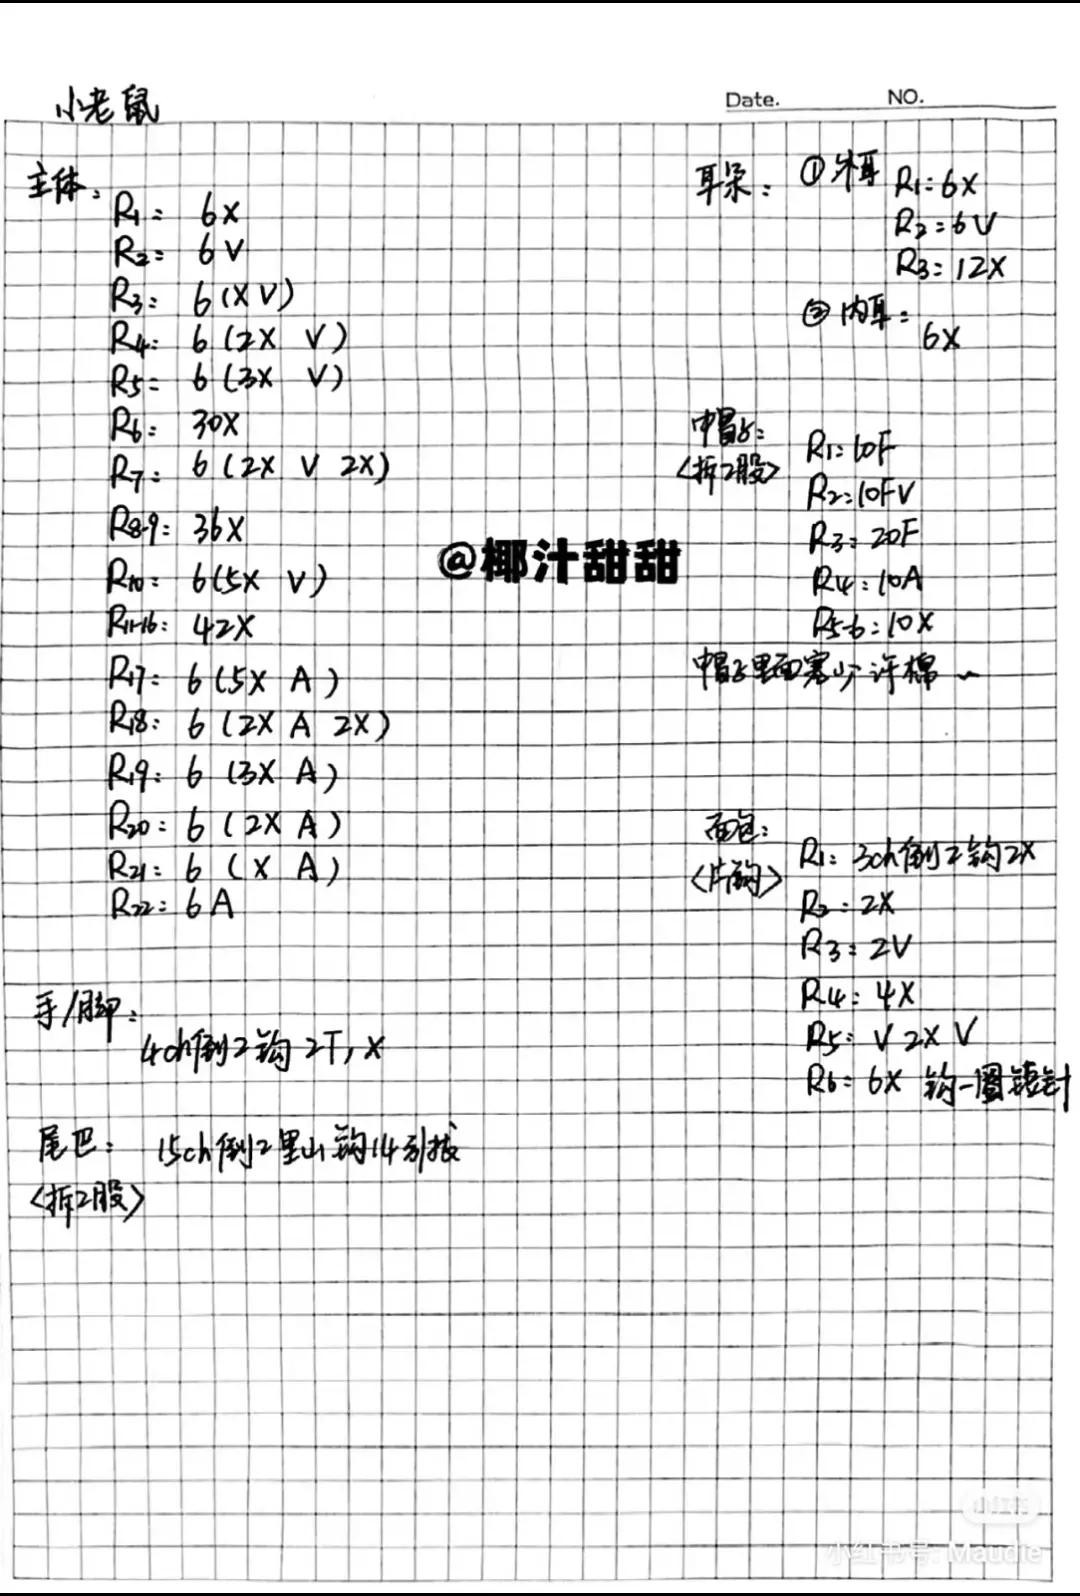 小老鼠
Date. NO.
主体:
R1: 6X
R2: 6V
R3: 6(XV)
R4: 6(2X V)
R5: 6(3X V)
R6: 30X
R7: 6(2X V 2X)
R8-9: 36X
R10: 6(5X V)
R11-16: 42X
R17: 6(5X A)
R18: 6(2X A 2X)
R19: 6(3X A)
R20: 6(2X A)
R21: 6(X A)
R22: 6A
手/脚:
4ch倒2钩2T,X
尾巴: 15ch倒2里山钩14引拔
<拆2股>
耳朵: ①外耳 R1: 6X
R2: 6V
R3: 12X
②内耳:
6X
帽子:
<拆2股>
R1: 10F
R2: 10FV
R3: 20F
R4: 10A
R5-6: 10X
帽子里面塞少许棉~
@椰汁甜甜
面包:
<片钩>
R1: 3ch倒2钩2X
R2: 2X
R3: 2V
R4: 4X
R5: V 2X V
R6: 6X 钩一圈短针
小红书
小红书号: Maudie